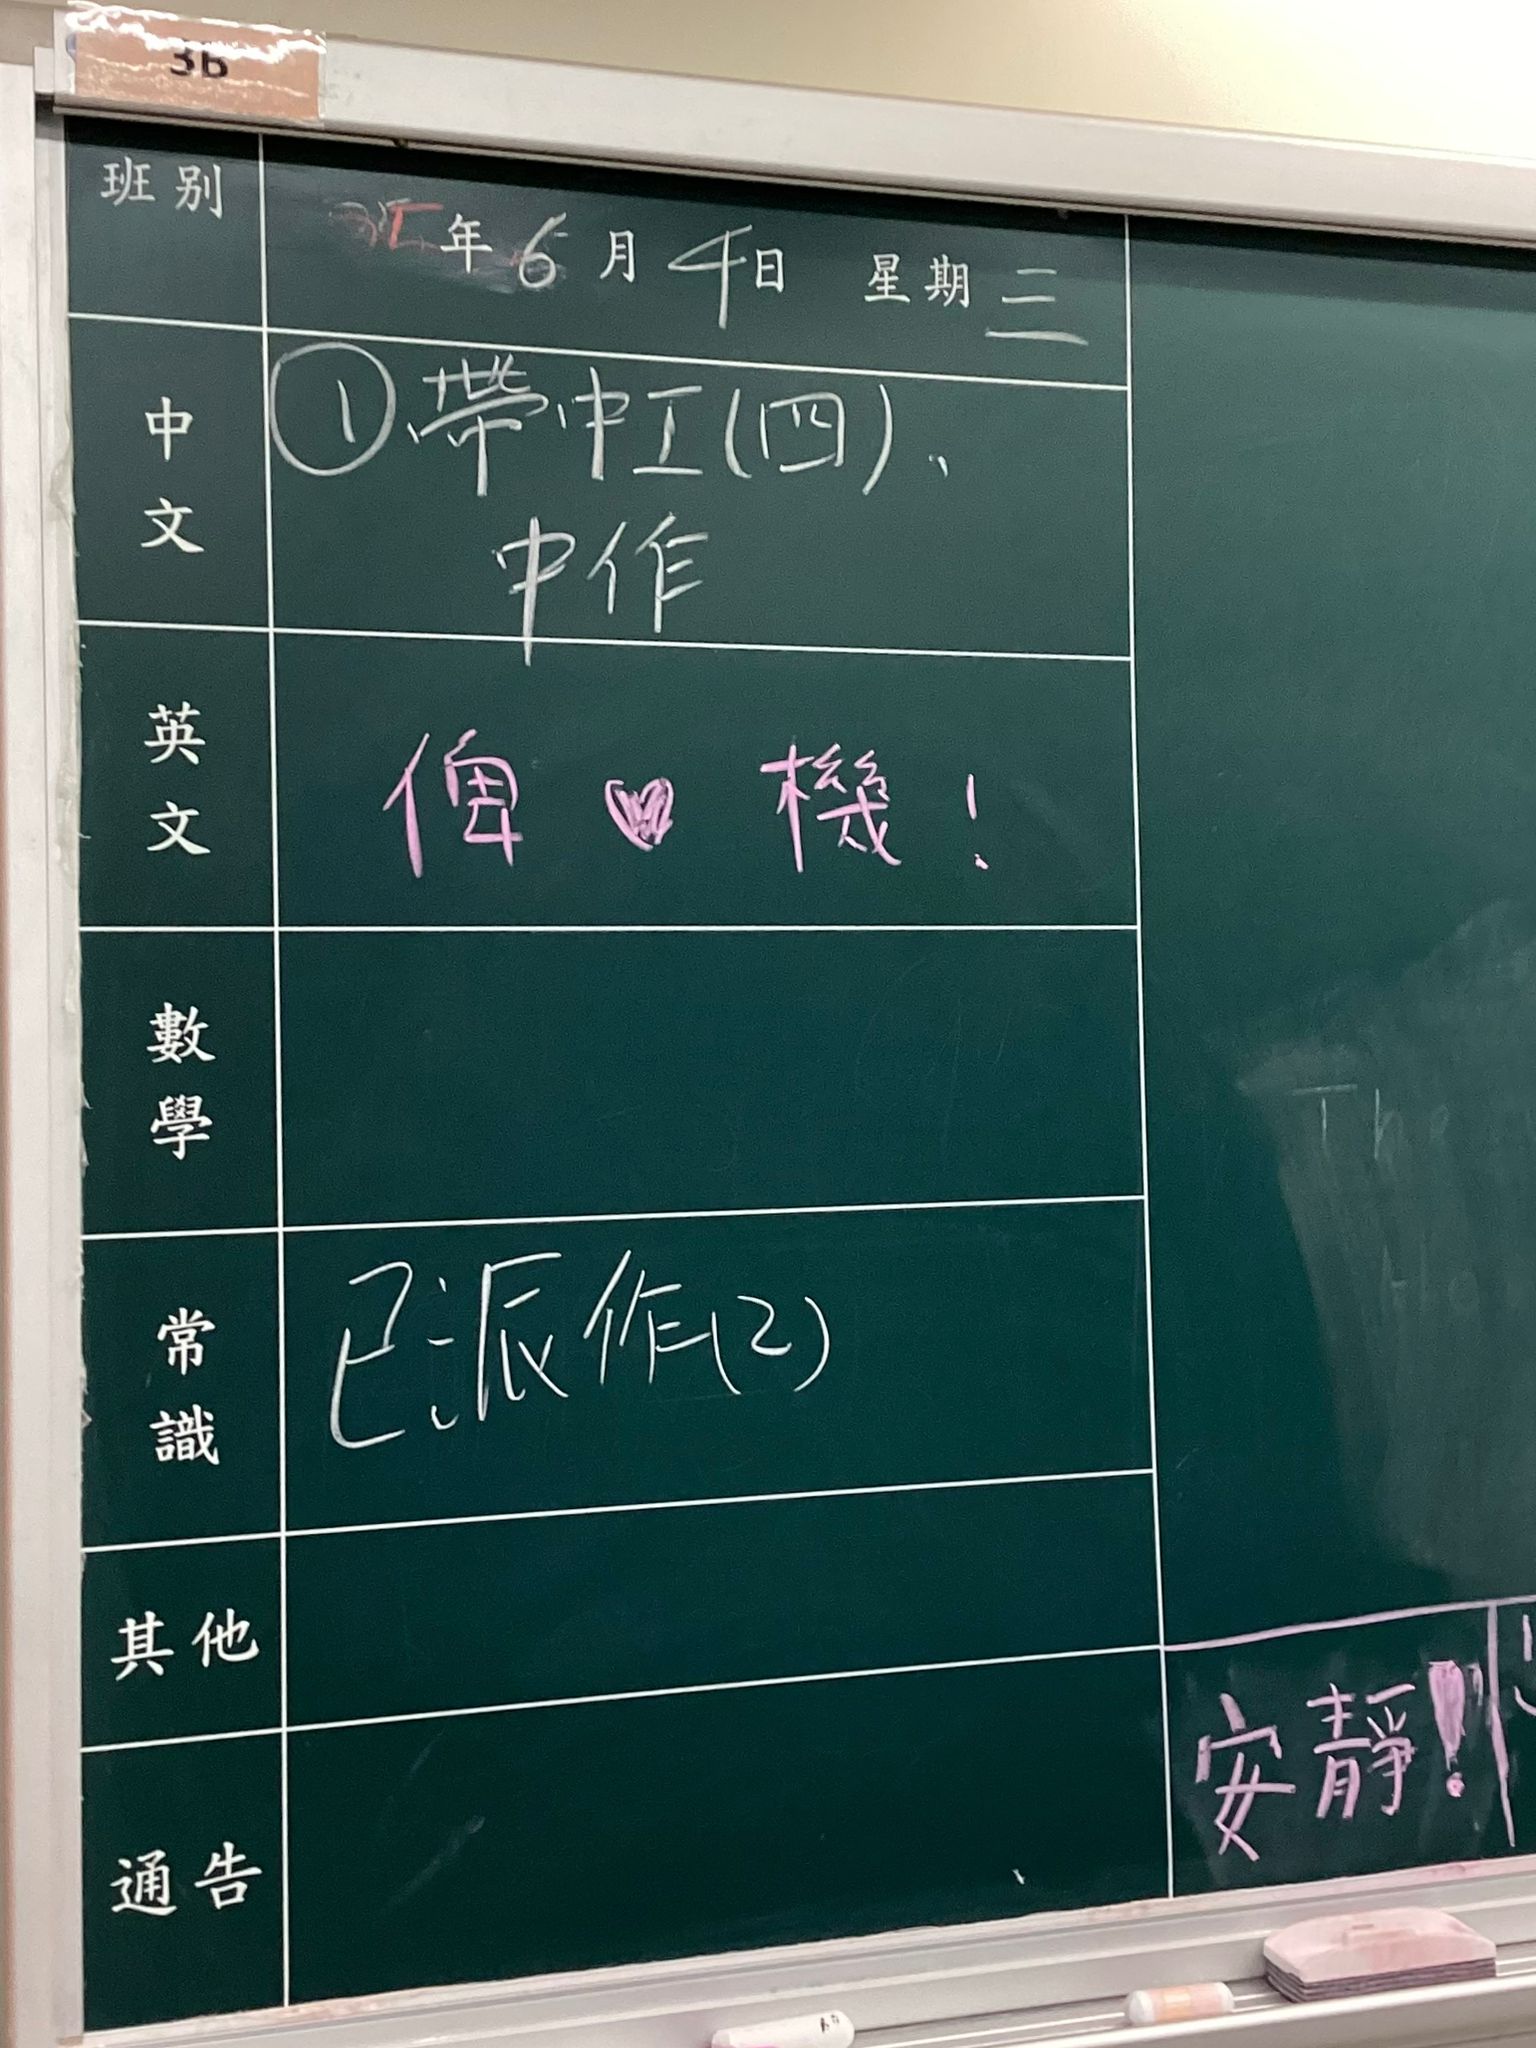 3B
班別
年6月4日 星期三
中文
①帶中工(四)、
中作
英文
俾♥機！
數學
常識
已派作(2)
其他
通告
安靜!
The